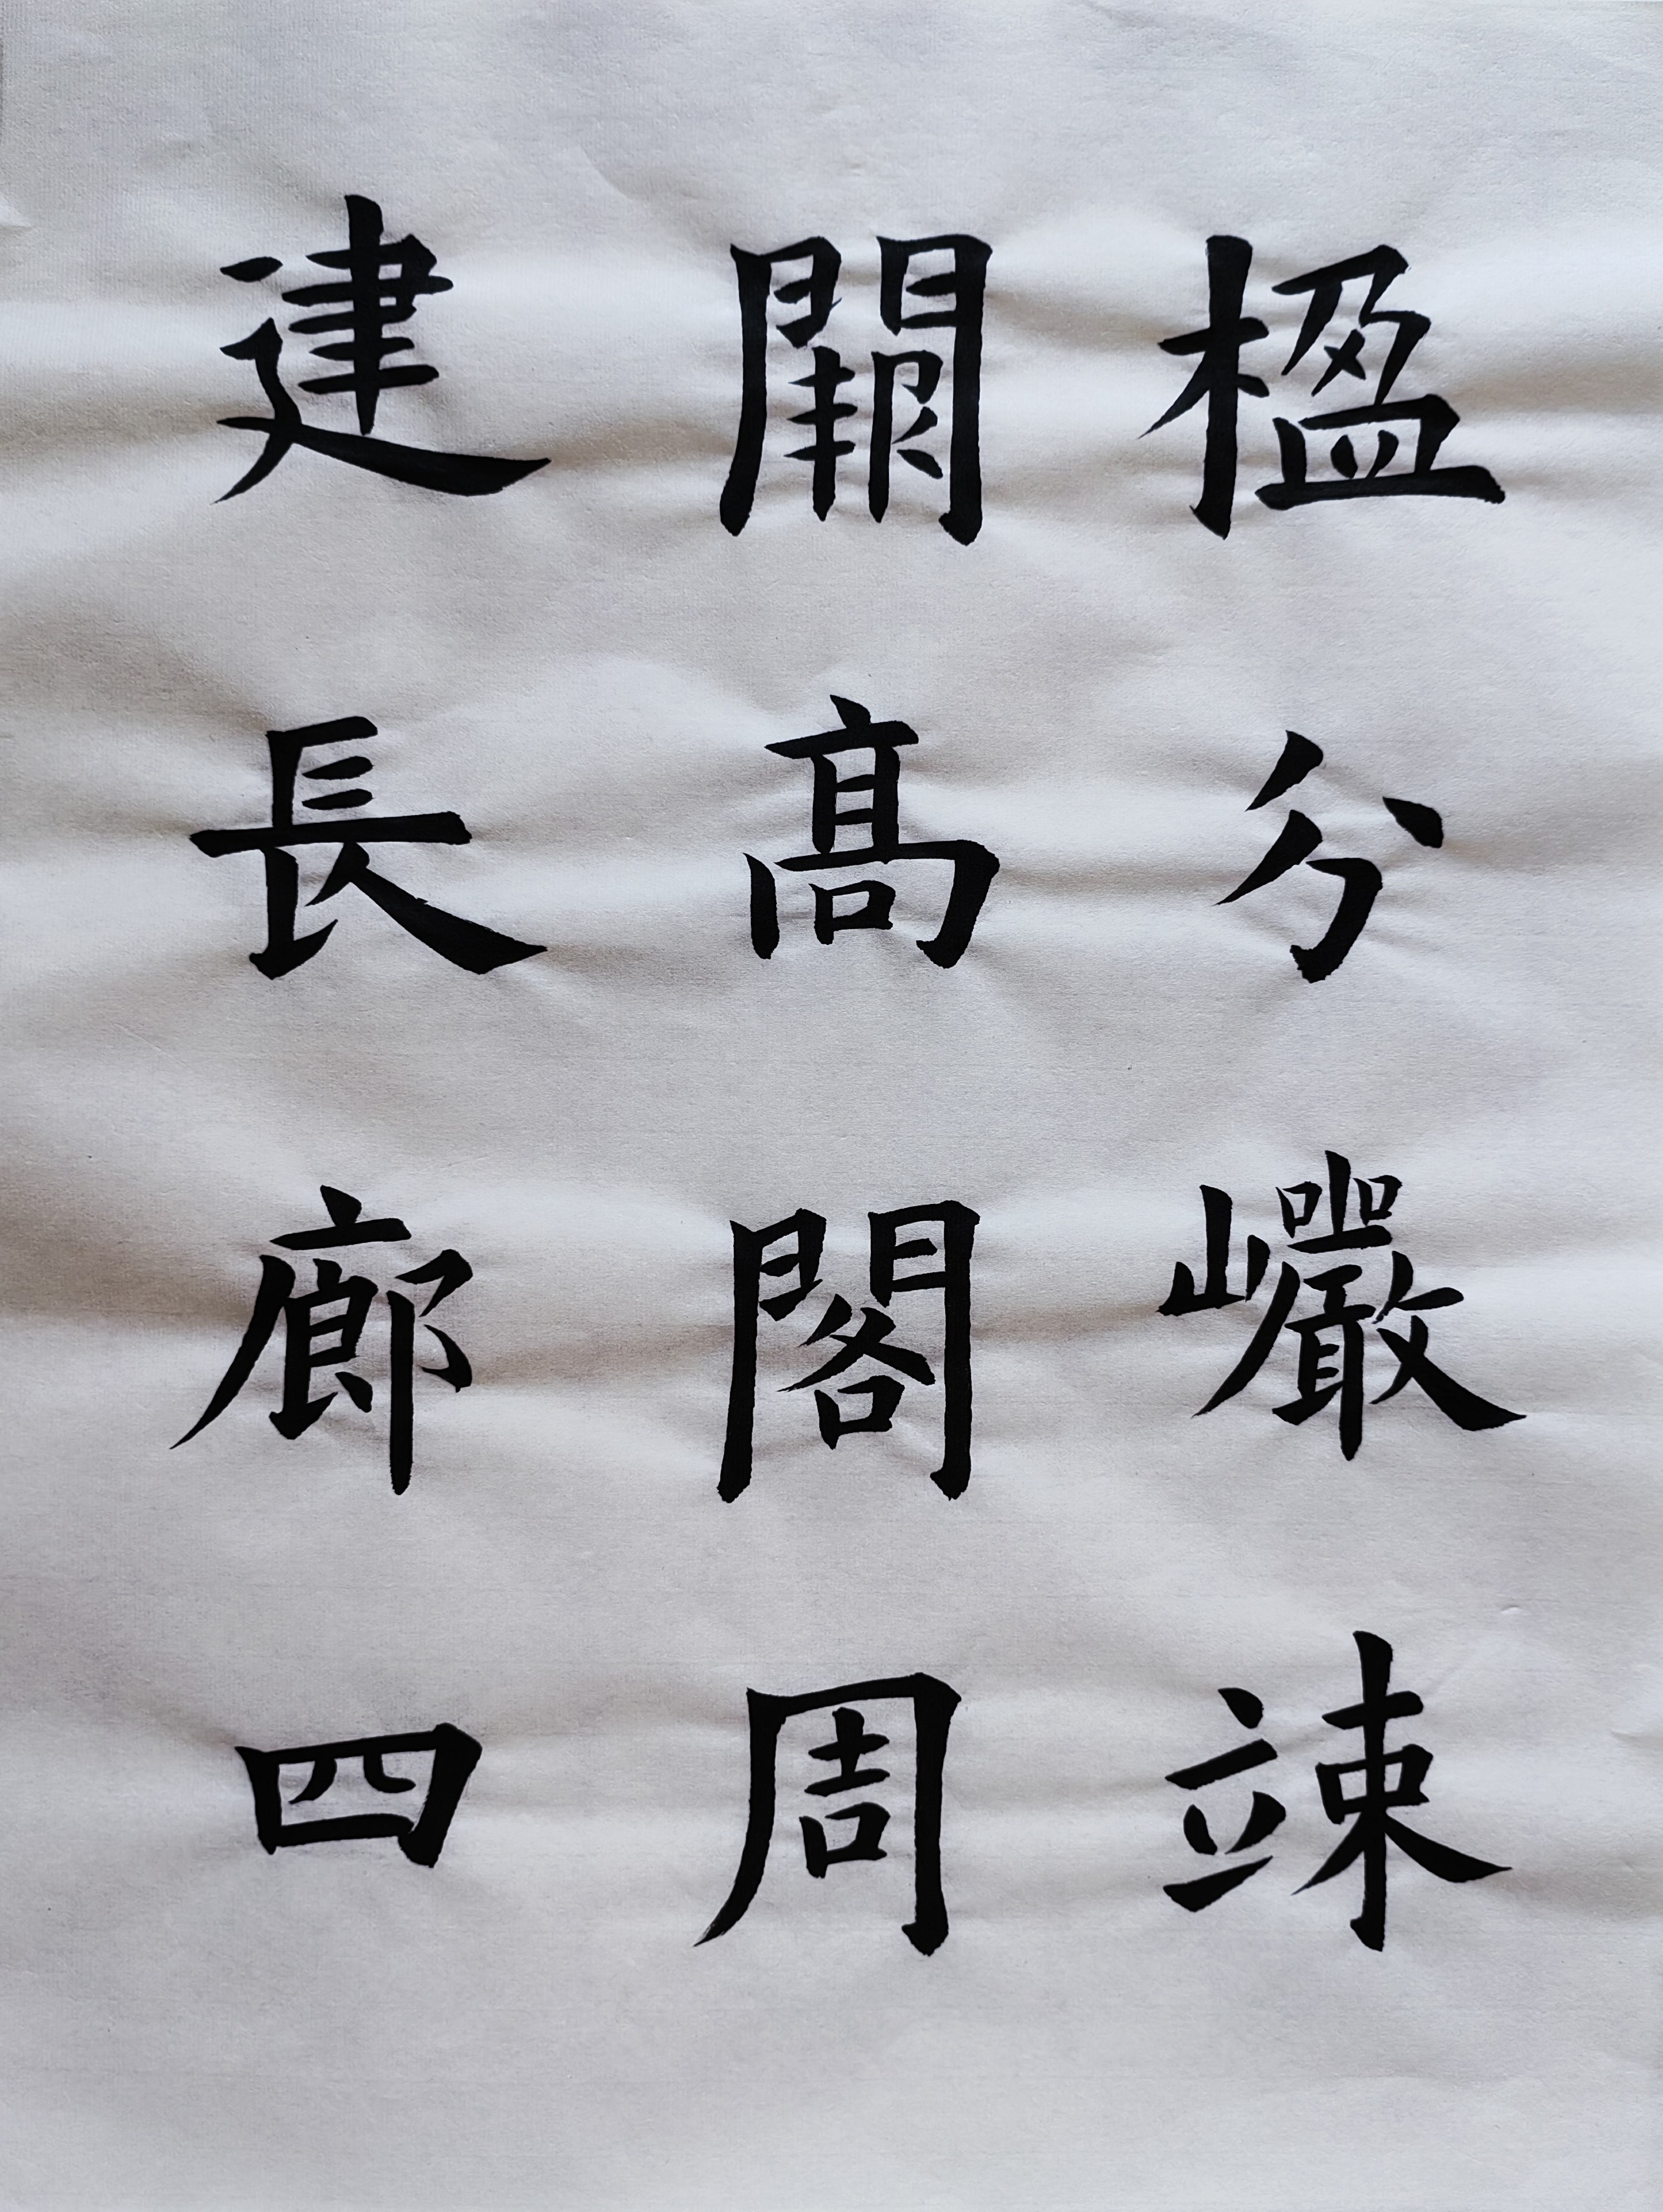 楹分巖竦
闕高閣周
建長廊四